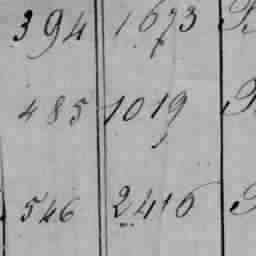 394 1673
485 1019
546 2416